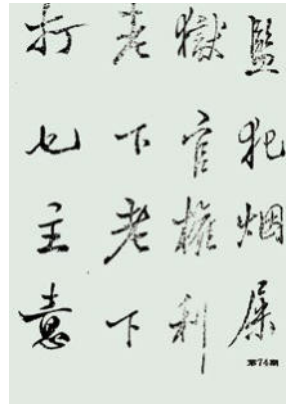 監犯烟屎
獄官權利
老下老下
打乜主意
第74期